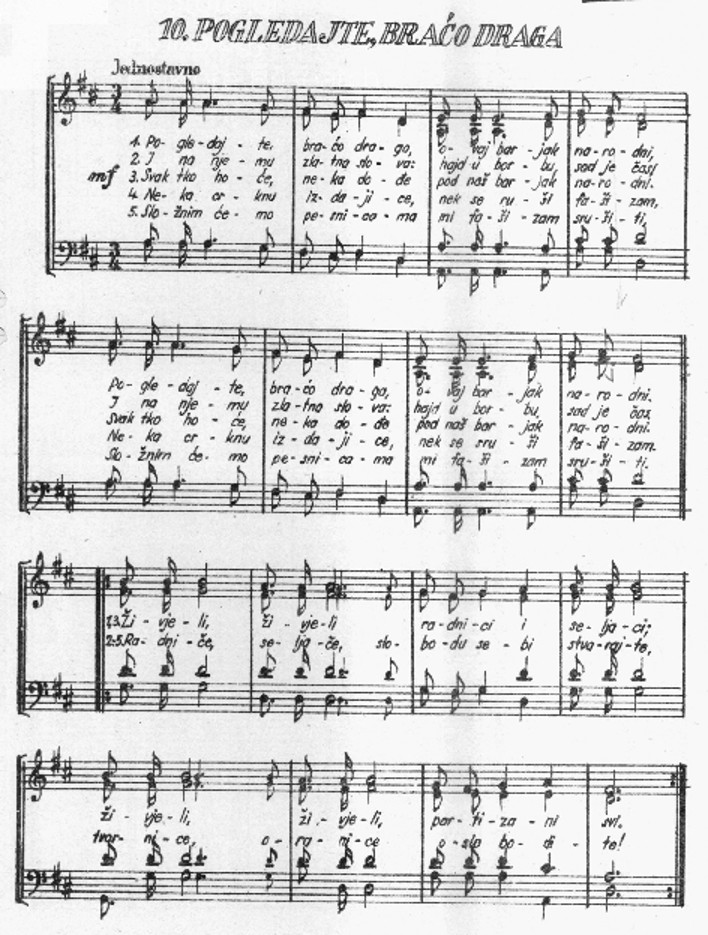 10. POGLEDAJTE, BRAĆO DRAGA
Jednostavno
3 4
1. Po- gle- daj - te, bra- ćo dra - ga, o- vaj bar - jak na - ro - dni,
2. I na nje - mu zla- tna slo - va: hajd u bor - bu, sad je čas!
mf 3. Svak tko ho - će, ne - ka do - đe pod naš bar - jak na - ro - dni.
4. Ne - ka cr - knu iz - da - ji - ce, nek se ru - ši fa - ši - zam,
5. Slo - žnim će - mo pe - sni - ca - ma mi fa - ši - zam sru - ši - ti,
3 4
Po - gle - daj - te, bra - ćo dra - ga, o - vaj bar - jak na - ro - dni.
I na nje - mu zla - tna slo - va: hajd u bor - bu, sad je čas.
Svak tko ho - će, ne - ka do - đe pod naš bar - jak na - ro - dni.
Ne - ka cr - knu iz - da - ji - ce, nek se sru - ši fa - ši - zam.
Slo - žnim će - mo pe - sni - ca - ma mi fa - ši - zam sru - ši - ti.
1.3. Ži - vje - li, ži - vje - li ra - dni - ci i se - lja - ci;
2.-5. Ra - dni - če, se - lja - če, slo - bo - du se - bi stva - raj - te,
ži - vje - li, ži - vje - li, par - ti - za - ni svi.
tvor - ni - ce, o - ra - ni - ce o - slo bo - di - te!